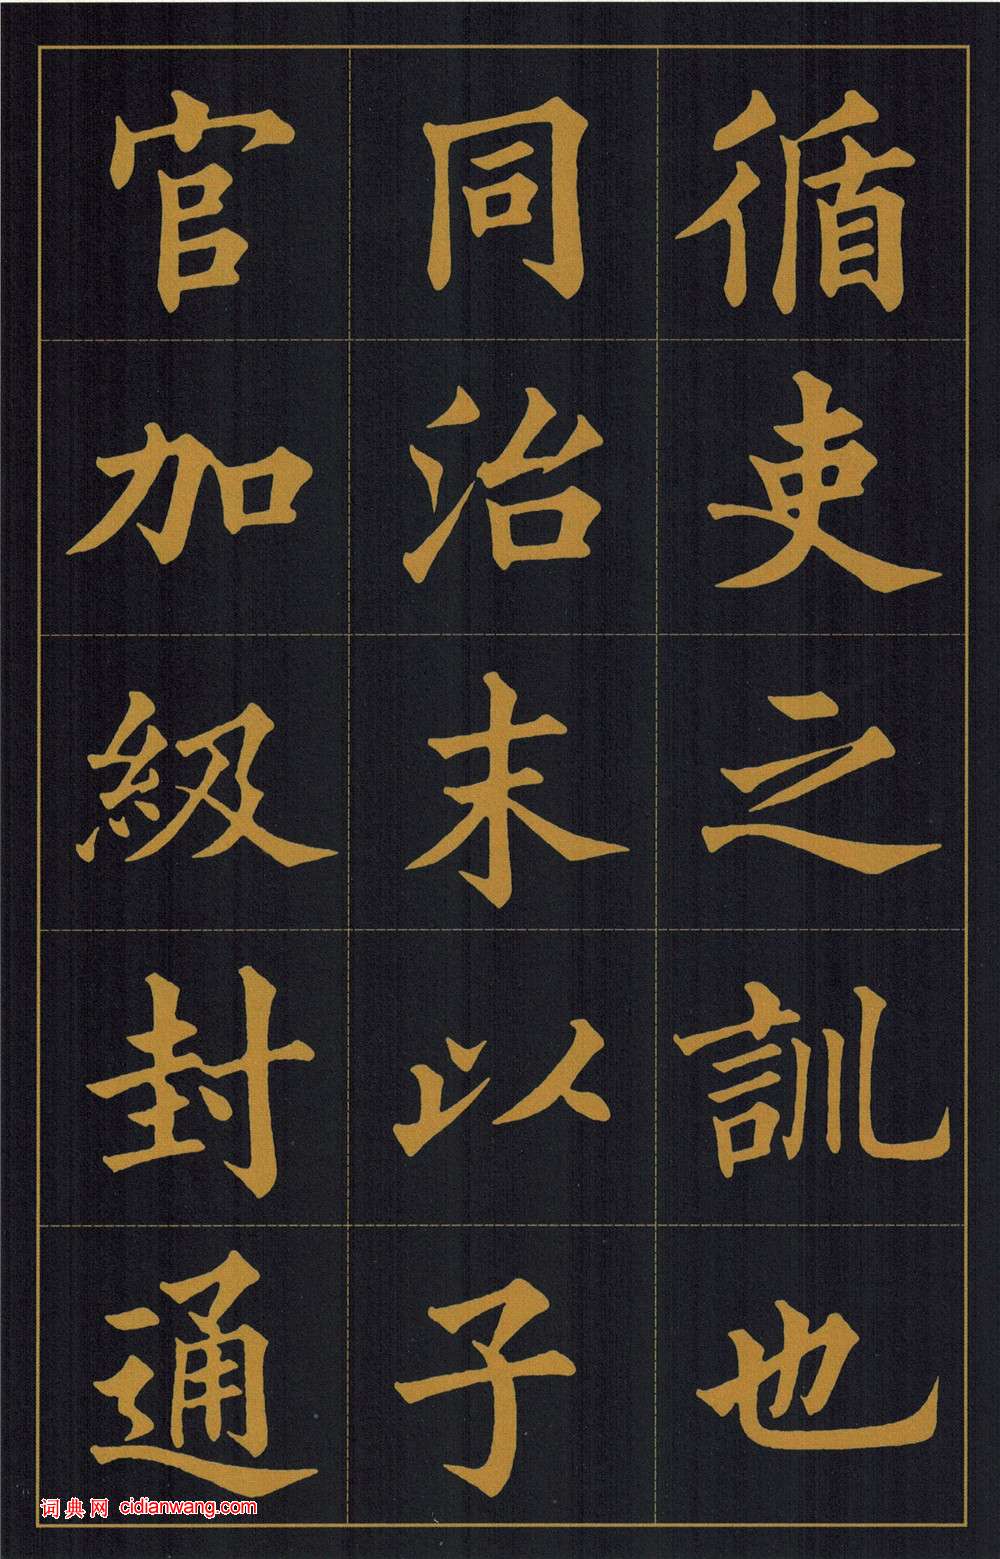 循吏之訓也
同治末以子
官加級封通
词典网 cidianwang.com